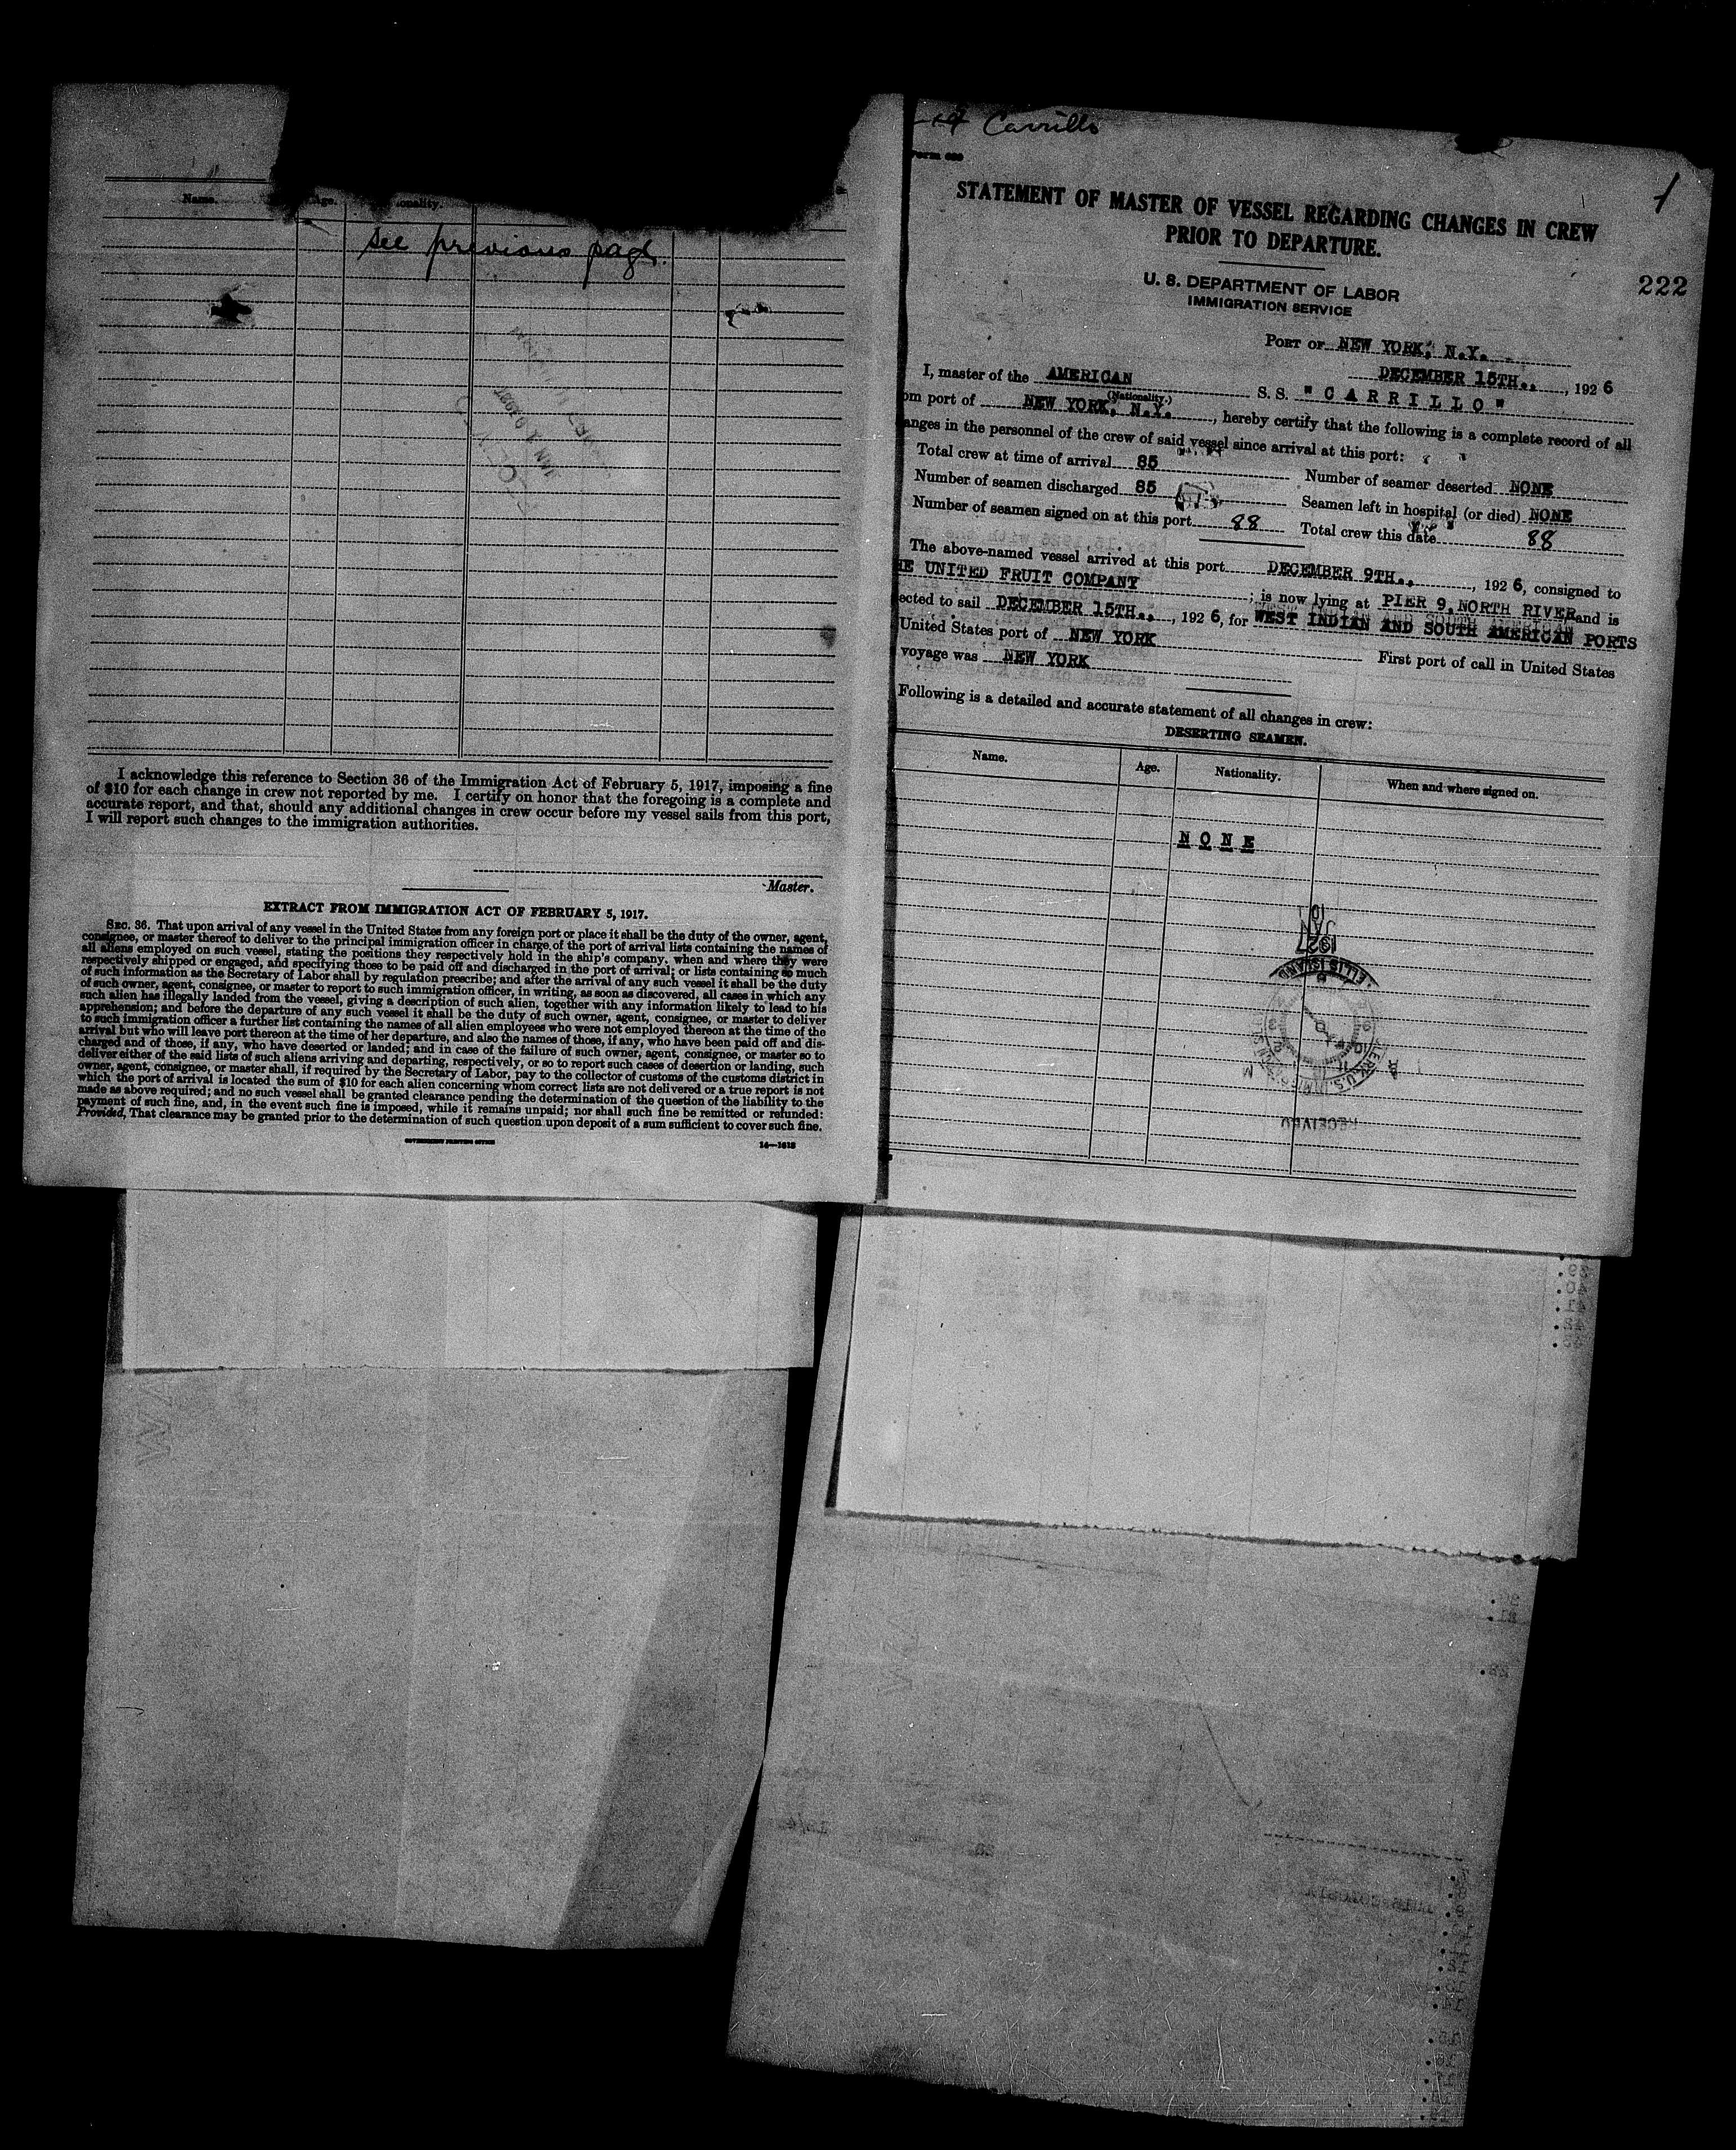 Name.
Age.
see previous page.
I acknowledge this reference to Section 36 of the Immigration Act of February 5, 1917, imposing a fine
of $10 for each change in crew not reported by me. I certify on honor that the foregoing is a complete and
accurate report, and that, should any additional changes in crew occur before my vessel sails from this port,
I will report such changes to the immigration authorities.
Master.
EXTRACT FROM IMMIGRATION ACT OF FEBRUARY 5, 1917.
SEC. 36. That upon arrival of any vessel in the United States from any foreign port or place it shall be the duty of the owner, agent,
consignee, or master thereof to deliver to the principal immigration officer in charge of the port of arrival lists containing the names of
all aliens employed on such vessel, stating the positions they respectively hold in the ship's company, when and where they were
respectively shipped or engaged, and specifying those to be paid off and discharged in the port of arrival; or lists containing so much
of such information as the Secretary of Labor shall by regulation prescribe; and after the arrival of any such vessel it shall be the duty
of such owner, agent, consignee, or master to report to such immigration officer, in writing, as soon as discovered, all cases in which any
such alien has illegally landed from the vessel, giving a description of such alien, together with any information likely to lead to his
apprehension; and before the departure of any such vessel it shall be the duty of such owner, agent, consignee, or master to deliver
to such immigration officer a further list containing the names of all alien employees who were not employed thereon at the time of the
arrival but who will leave port thereon at the time of her departure, and also the names of those, if any, who have been paid off and dis-
charged and of those, if any, who have deserted or landed; and in case of the failure of such owner, agent, consignee, or master so to
deliver either of the said lists of such aliens arriving and departing, respectively, or so to report such cases of desertion or landing, such
owner, agent, consignee, or master shall, if required by the Secretary of Labor, pay to the collector of customs of the customs district in
which the port of arrival is located the sum of $10 for each alien concerning whom correct lists are not delivered or a true report is not
made as above required; and no such vessel shall be granted clearance pending the determination of the question of the liability to the
payment of such fine, and, in the event such fine is imposed, while it remains unpaid; nor shall such fine be remitted or refunded:
Provided, That clearance may be granted prior to the determination of such question upon deposit of a sum sufficient to cover such fine.
GOVERNMENT PRINTING OFFICE
Carrillo
1
STATEMENT OF MASTER OF VESSEL REGARDING CHANGES IN CREW
PRIOR TO DEPARTURE.
222
U. S. DEPARTMENT OF LABOR
IMMIGRATION SERVICE
PORT OF NEW YORK, N.Y.
DECEMBER 15TH., 1926
I, master of the AMERICAN S. S. "CARRILLO"
(Nationality.)
om port of NEW YORK, N.Y., hereby certify that the following is a complete record of all
anges in the personnel of the crew of said vessel since arrival at this port:
Total crew at time of arrival 85 Number of seamer deserted NONE
Number of seamen discharged 85 Seamen left in hospital (or died) NONE
Number of seamen signed on at this port 88 Total crew this date 88
The above-named vessel arrived at this port DECEMBER 9TH., 1926, consigned to
HE UNITED FRUIT COMPANY; is now lying at PIER 9, NORTH RIVER and is
ected to sail DECEMBER 15TH., 1926, for WEST INDIAN AND SOUTH AMERICAN PORTS
United States port of NEW YORK First port of call in United States
voyage was NEW YORK
Following is a detailed and accurate statement of all changes in crew:
DESERTING SEAMEN.
Name. Age. Nationality. When and where signed on.
NONE
10
JAN
1927
ELLIS ISLAND
RECEIVED